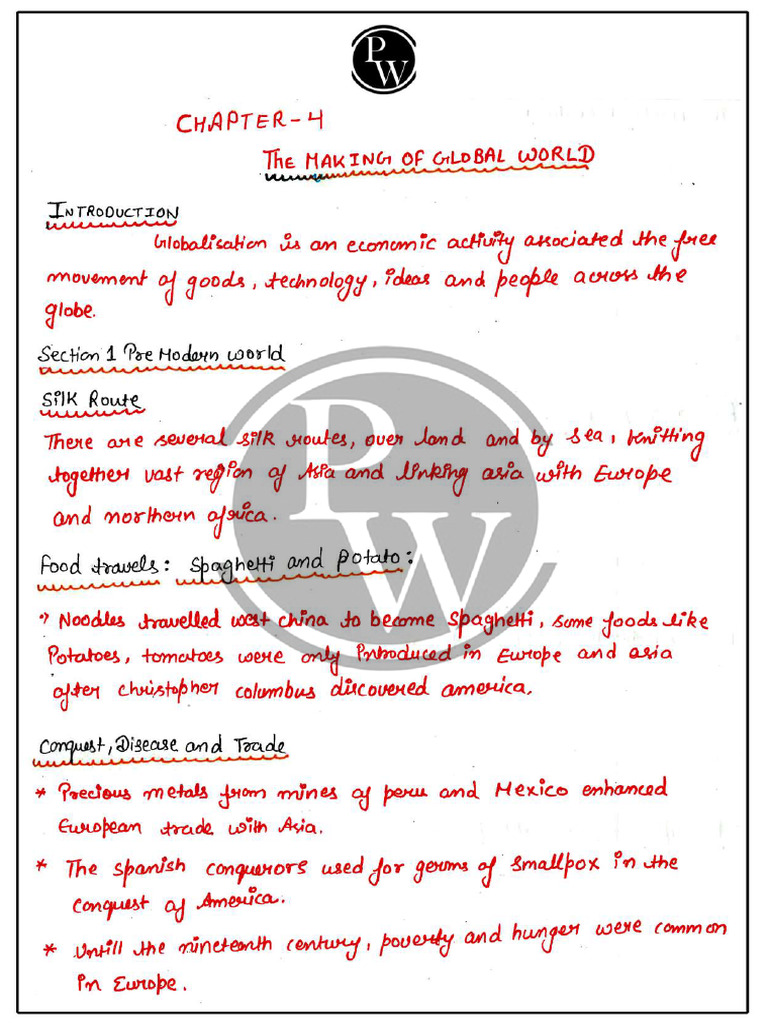 PW
CHAPTER-4
The MAKING OF GLOBAL WORLD
INTRODUCTION
Globalisation is an economic activity associated the free
movement of goods, technology, ideas and people across the
globe.
Section 1 Pre Modern world
Silk Route
There are several silk routes, over land and by sea, knitting
together vast region of Asia and linking asia with Europe
and northern africa.
Food travels: Spaghetti and potato:
Noodles travelled west china to become spaghetti, some foods like
Potatoes, tomatoes were only Introduced in Europe and asia
after christopher columbus discovered america.
Conquest, Disease and Trade
* Precious metals from mines of peru and Mexico enhanced
European trade with Asia.
* The Spanish conquerors used for germs of smallpox in the
conquest of America.
* Untill the nineteenth century, poverty and hunger were common
in Europe.